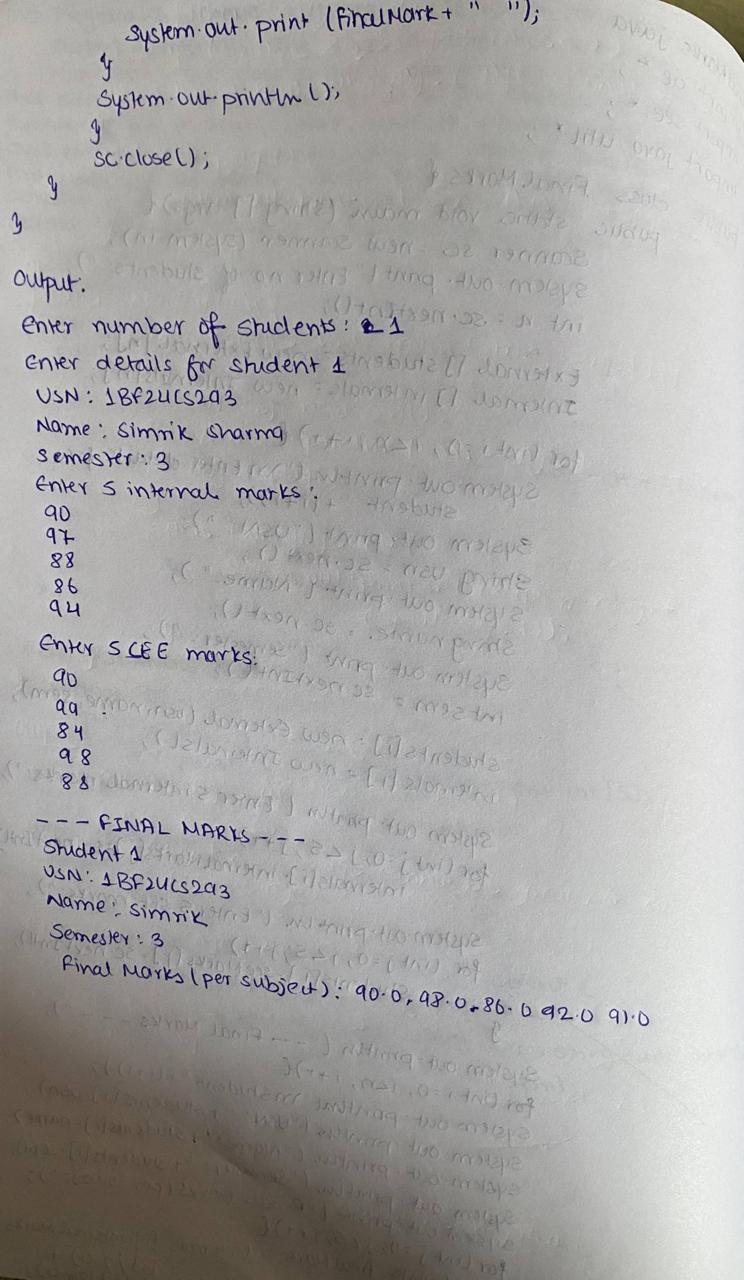 System.out.print (finalMark + " ");
}
System.out.println();
}
sc.close();
}
}
Output.
Enter number of students: 1
Enter details for student 1
USN: 1BF24CS293
Name: Simrik Sharma
Semester: 3
Enter 5 internal marks:
90
97
88
86
94
Enter 5 CEE marks:
90
99
84
98
88
--- FINAL MARKS ---
Student 1
USN: 1BF24CS293
Name: Simrik
Semester: 3
Final Marks (per subject): 90.0, 98.0, 86.0 92.0 91.0